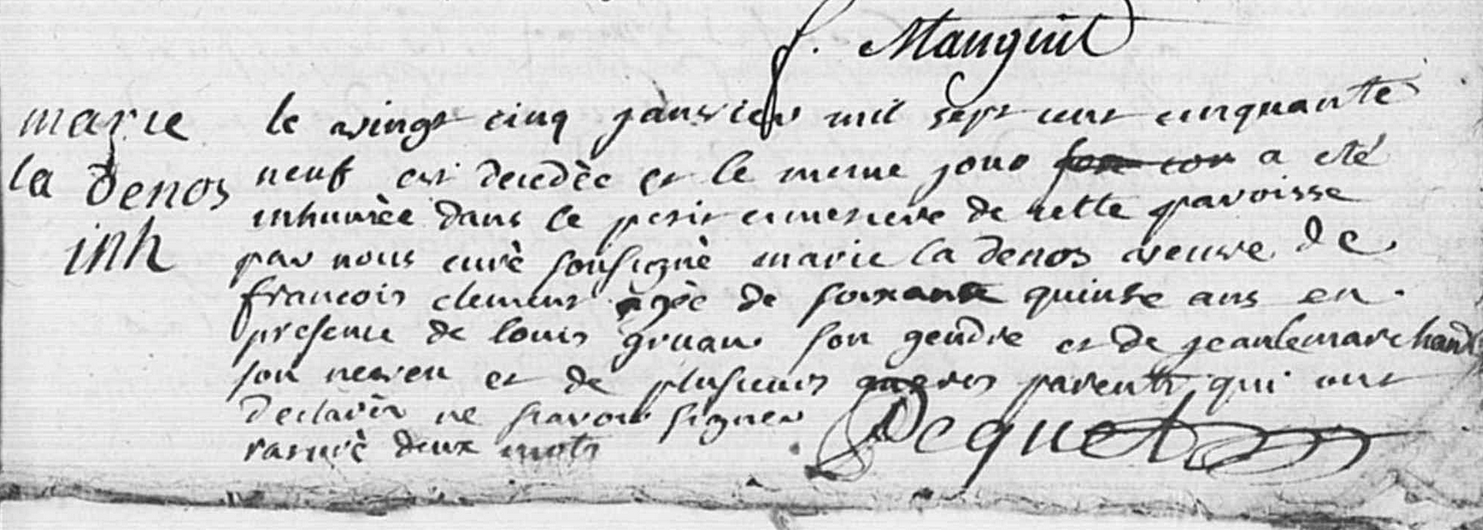 f. Mauguit
marie
la denos
inh
le vingt cinq janvier mil sept cent cinquante
neuf est decedèe et le meme jour a eté
inhumèe dans le petit cimetiere de cette paroisse
par nous curè sousignè marie la denos veuve de
francois clement agèe de soixante quinze ans en
presence de louis gruau son gendre et de jean lemarchand
son neveu et de plusieurs autres parents qui ont
declarèr ne scavoir signer
raturè deux mots Pequet